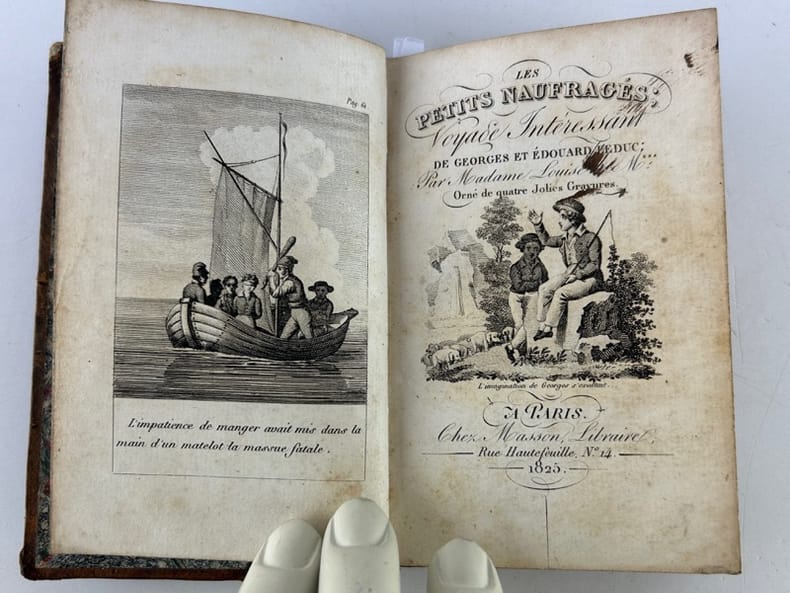 Pag. 64
L'impatience de manger avait mis dans la
main d'un matelot la massue fatale.
LES
PETITS NAUFRAGÉS;
Voyage Intéressant
DE GEORGES ET ÉDOUARD LEDUC;
Par Madame Louise M***
Orné de quatre Jolies Gravures.
L'imagination de Georges s'exaltant...
A PARIS.
Chez Masson, Libraire,
Rue Hautefeuille, N.º 14.
1825.